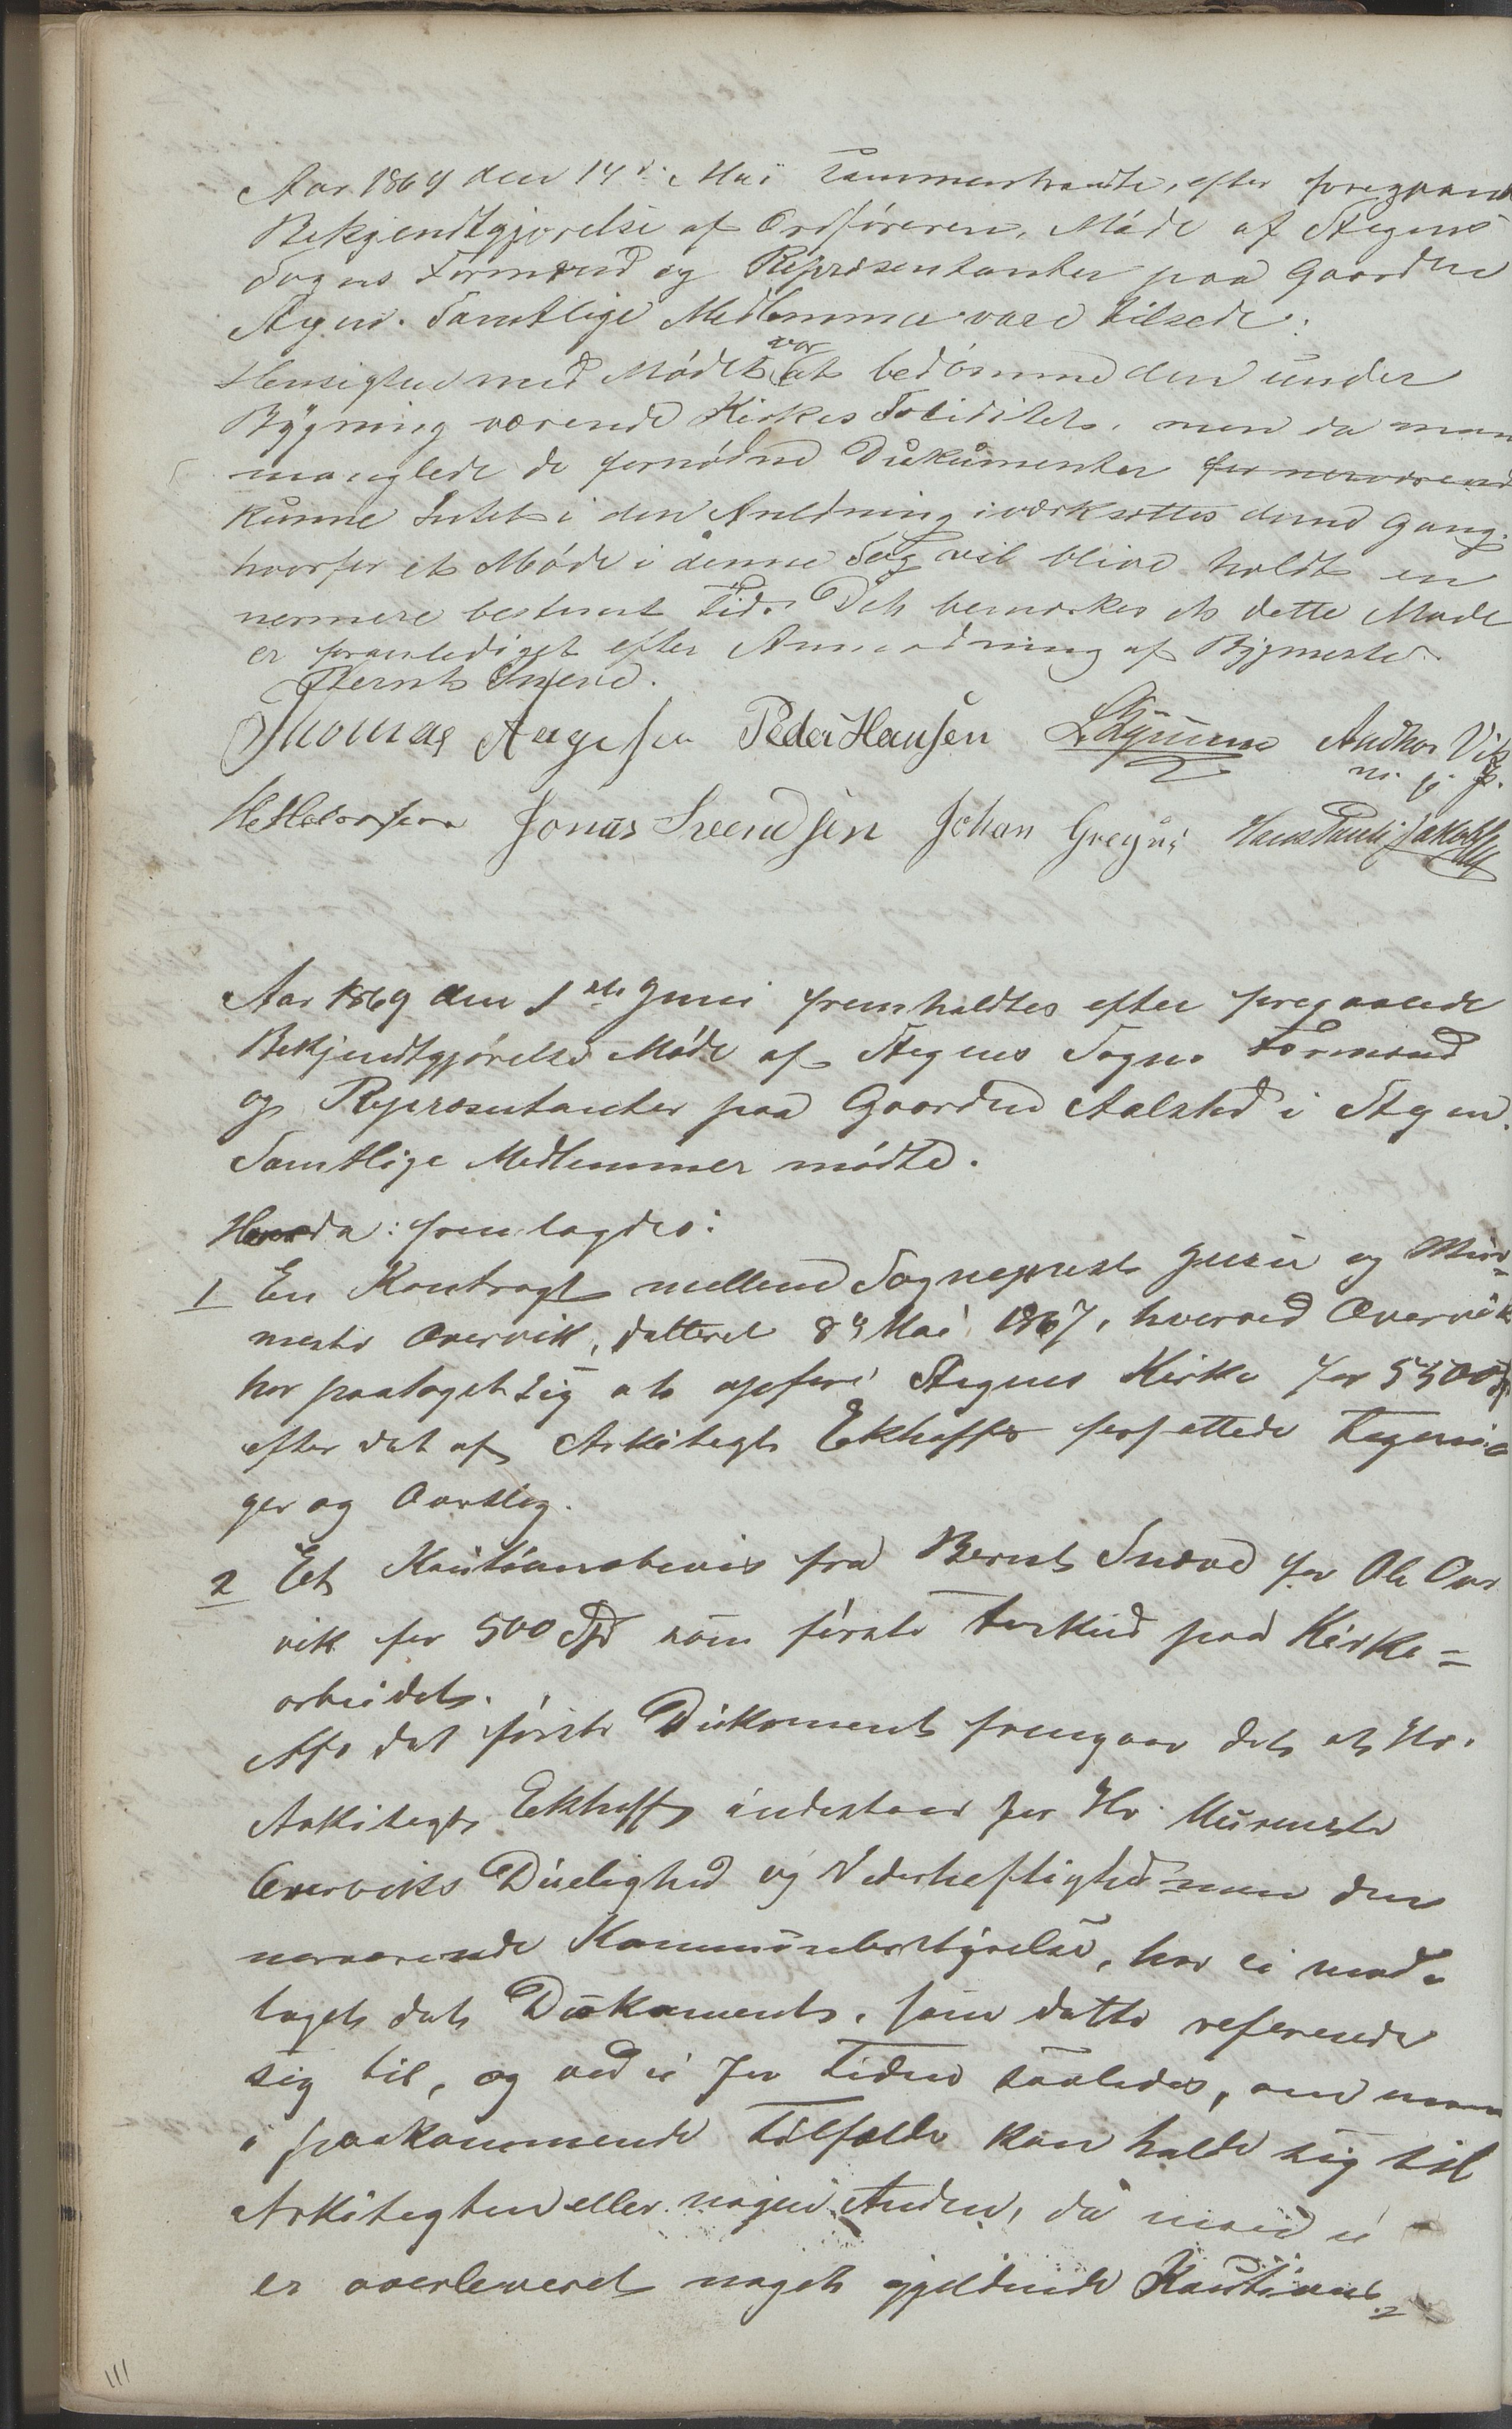 Aar 1869 den 14de Mai sammentraadte, efter foregaaend
Bekjendtgjørelse af Ordføreren, Møde af Stegens
Sogns Formænd og Repræsentanter paa Gaarden
Stegen. Samtlige Medlemmer vare tilstede.
Hensigten med Mødet var at bedømme den under
Bygning værende Kirkes Soliditet, men da man
manglede de fornødne Dukumenter for nærværend
kunne Intet i den Anledning iværksættes denne Gang.
hvorfor et Møde i denne Sag vil blive holdt en
nermere bestemt Tid. Det bemærkes at dette Møde
er foranlediget efter Anmodning af Bygmester
Bernt Sneve.
Thomas Aagesen Peder Hansen Andhor Vik
m. p. P.
Jonas Svendsen Johan Gregus Hans Pauli Jakobs
Aar 1869 den 1ste Juni fremholdtes efter foregaaende
Bekjendtgjørelse Møde af Stegens Sogns Formænd
og Repræsentanter paa Gaarden Aalsted i Stegen.
Samtlige Medlemmer mødte.
Hvorda: fremlagdes:
1 En Kontragt mellem Sogneprest Juell og Mur-
mester Overvik, datteret 8de Mai 1867, hvorved Overvik
har paataget sig at opføre Stegens Kirke for 5500
efter det af Arkitegt Ekhoffs forfattede Tegnin-
ger og Overslag.
2 Et Kautionsbevis fra Bernt Snøve for Ole Over
vik for 500 Spd som første Forskud paa Kirke=
arbeidet.
Af det første Dukoment fremgaar det at Hr.
Arkitegt Ekhoff indestaar for Hr. Murmester
Overviks Duelighed og Vederheftighed men den
nærværende Kommunebestyrelse, har ei mod-
taget det Dukoment, som dette referende
sig til, og ved ei for Tiden saaledes, om man
i paakommende Tilfælde kan holde sig til
Arkitegten eller nogen Anden, da man ei
er overleveret noget gjeldende Kautions-
111